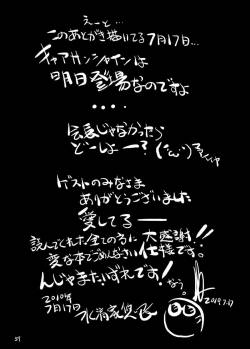 えーと...
このあとがき描いてる7月17日...
キュアサンシャインは
明日登場なのですよ
....
会長じゃなかったら
どーしよー?
ゲストのみなさま
ありがとうございました
愛してるー
読んでくれた全ての方に大感謝!!
変な本でごめんなさい仕様です。
んじゃまたいずれです!
2010年
7月17日